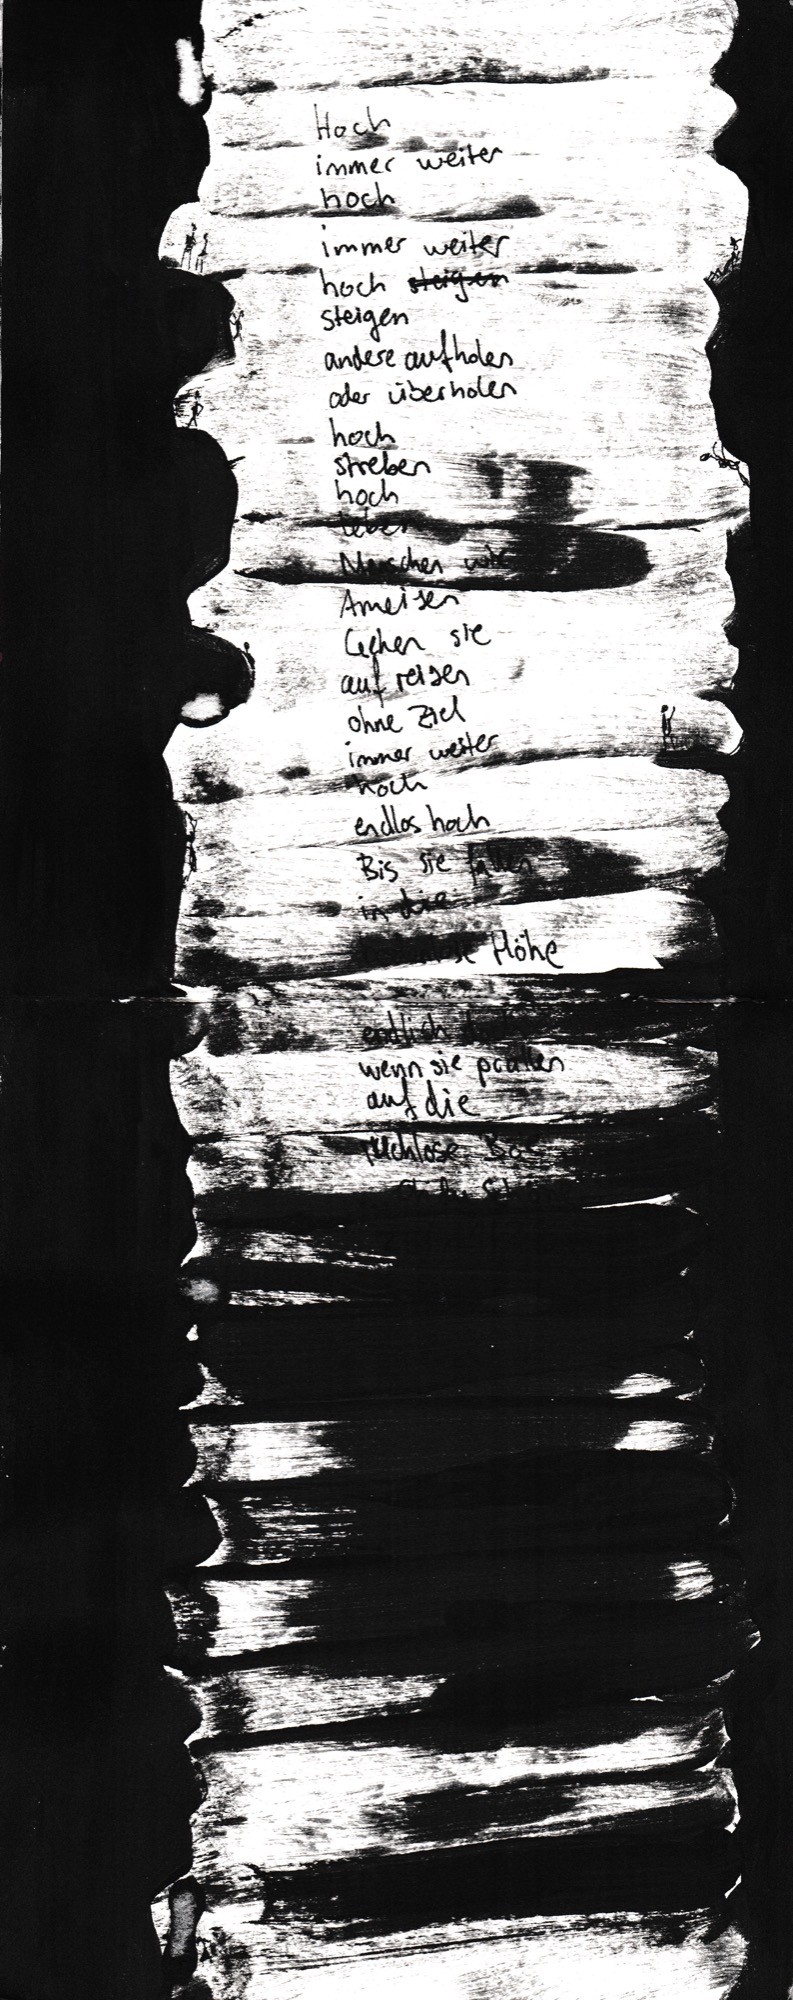 Hoch
immer weiter
hoch
immer weiter
hoch steigen
steigen
andere aufholen
oder überholen
hoch
streben
hoch
leben
Menschen wie
Ameisen
Gehen sie
auf reisen
ohne Ziel
immer weiter
hoch
endlos hoch
Bis sie fallen
in die
Höhe
endlich
wenn sie prallen
auf die